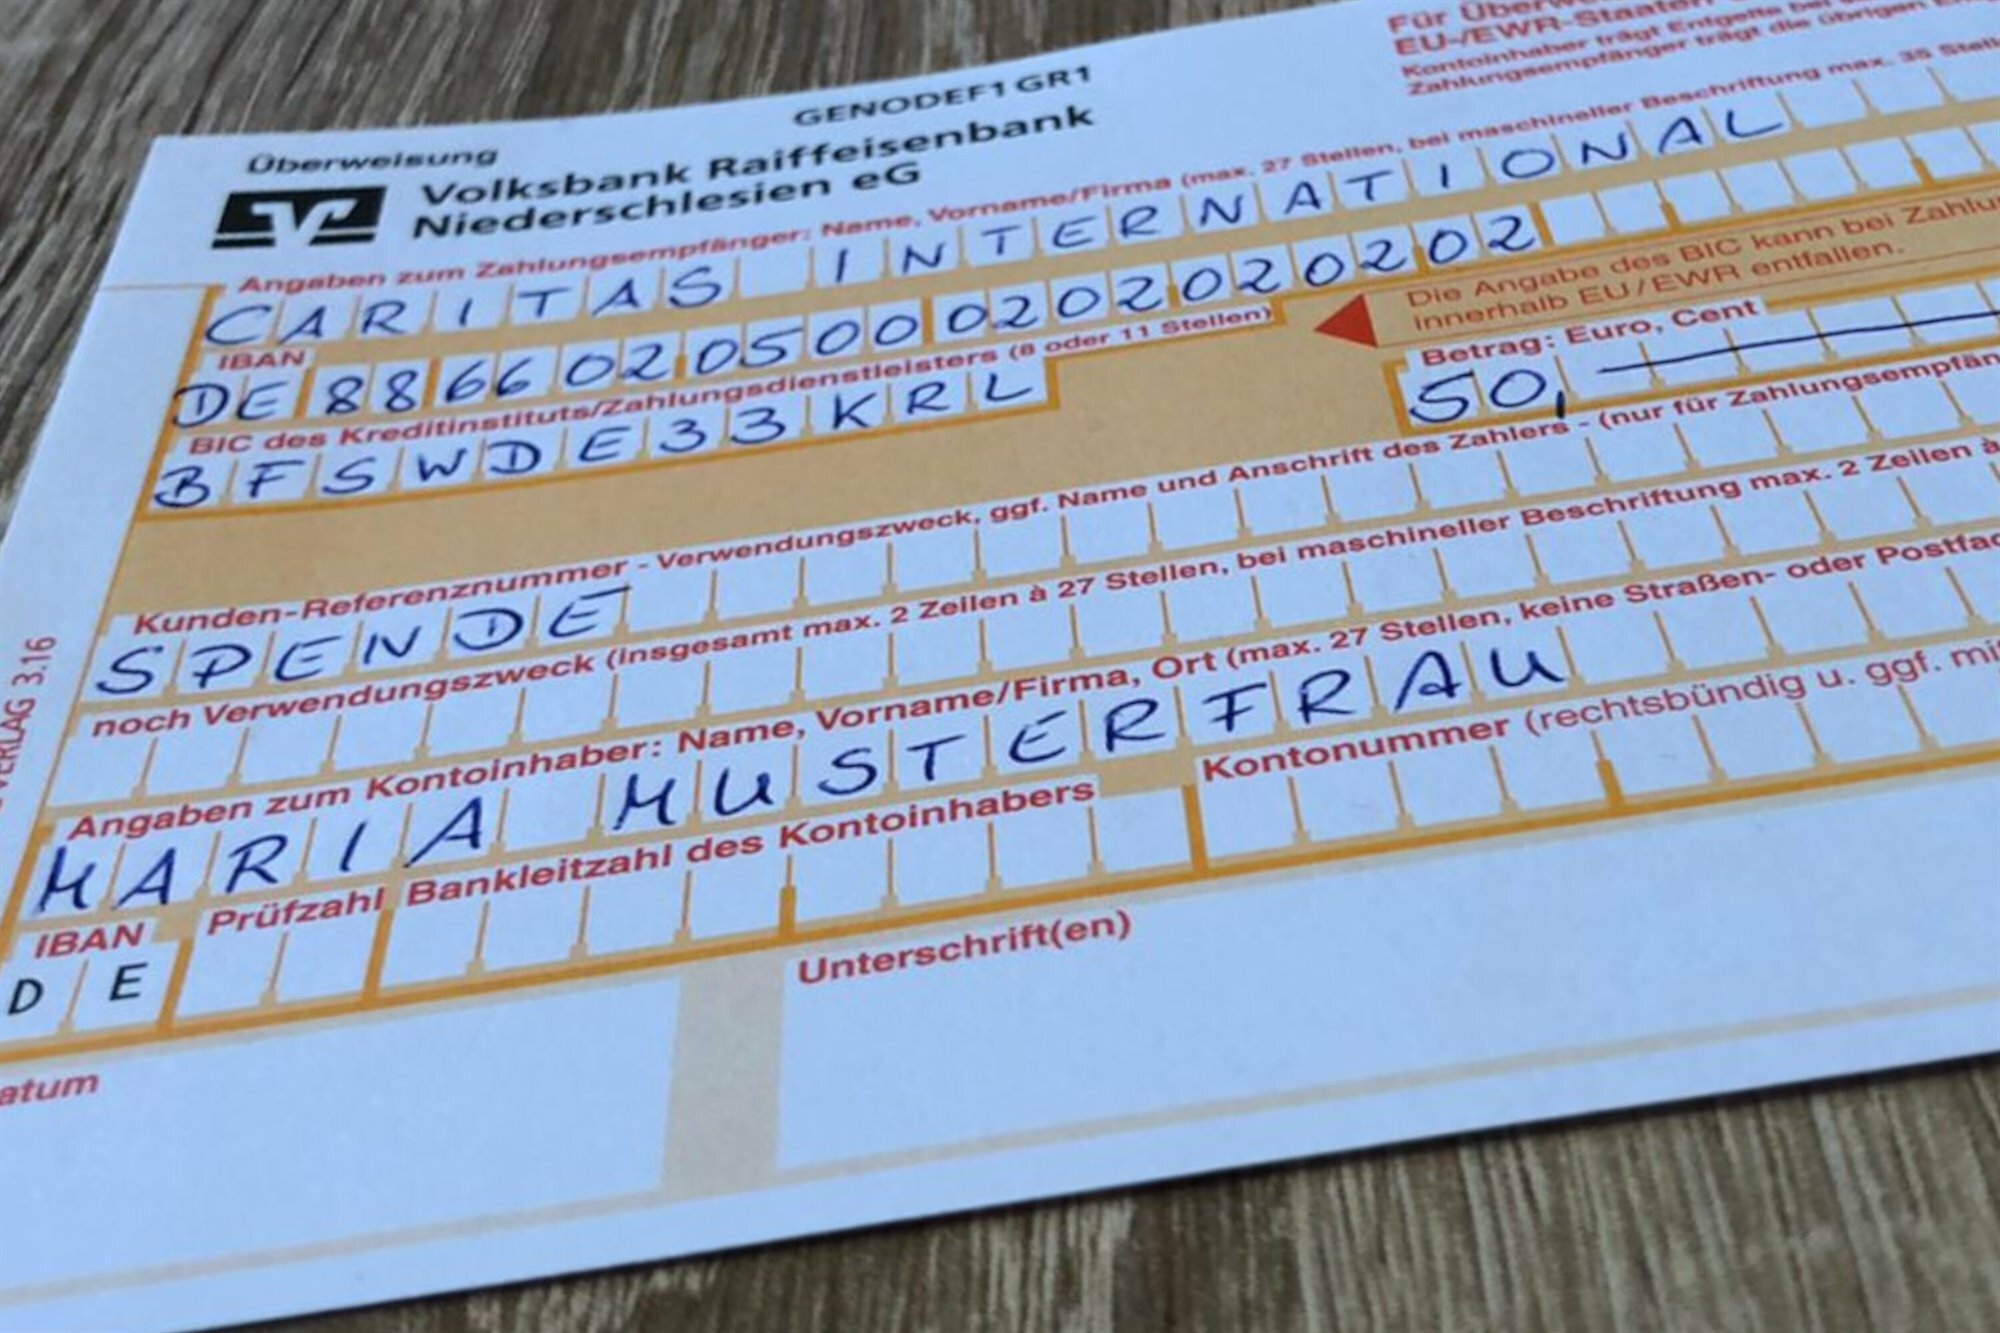 Überweisung
GENODEF1 GR1
Volksbank Raiffeisenbank
Niederschlesien eG
Für
EU-/EWR-Staaten
Kontoinhaber trägt Entgelte bei
Zahlungsempfänger trägt die übrigen
Angaben zum Zahlungsempfänger: Name, Vorname/Firma (max. 27 Stellen, bei maschineller Beschriftung max. 35
CARITAS INTERNATIONAL
IBAN
DE88660205000202020202
BIC des Kreditinstituts/Zahlungsdienstleisters (8 oder 11 Stellen)
BFSWDE33KRL
Die Angabe des BIC kann bei
innerhalb EU/EWR entfallen.
Betrag: Euro, Cent
50,—
Kunden-Referenznummer - Verwendungszweck, ggf. Name und Anschrift des Zahlers - (nur für
SPENDE
noch Verwendungszweck (insgesamt max. 2 Zeilen à 27 Stellen, bei maschineller Beschriftung max. 2 Zeilen à
Angaben zum Kontoinhaber: Name, Vorname/Firma, Ort (max. 27 Stellen, keine Straßen- oder
MARIA MUSTERFRAU
IBAN
Prüfzahl Bankleitzahl des Kontoinhabers
Kontonummer (rechtsbündig u. ggf. mit
DE
Unterschrift(en)
3.16